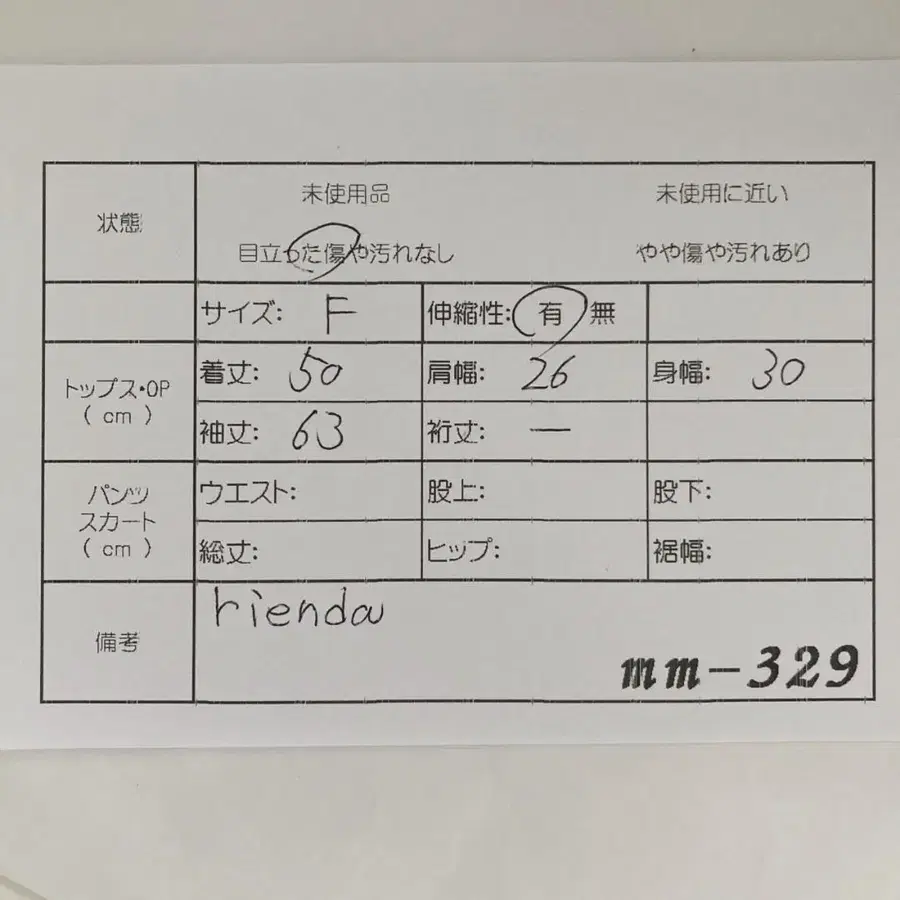 状態
未使用品 未使用に近い
目立った傷や汚れなし やや傷や汚れあり
サイズ: F 伸縮性: 有 無
トップス・OP
( cm )
着丈: 50 肩幅: 26 身幅: 30
袖丈: 63 裄丈: ―
パンツ
スカート
( cm )
ウエスト: 股上: 股下:
総丈: ヒップ: 裾幅:
備考
rienda
mm-329